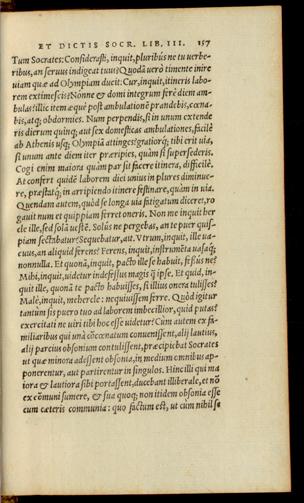 ET DICTIS SOCR. LIB. III. 157
Tum Socrates: Considerasti, inquit, pluribus ne tu uerbe-
ribus, an seruus indigeat tuus? Quodã uerò timente inire
uiam quæ ad Olympiam ducit: Cur, inquit, itineris labo-
rem extimescis? Nonne & domi integrum ferè diem am-
bulas? illic item æque post ambulationẽ prandebis, cœna-
bis, atq; obdormies. Num perpendis, si in unum extende
ris dierum quinq; aut sex domesticas ambulationes, facilè
ab Athenis usq; Olympiã attinges? gratiorq; tibi erit uia,
si unum ante diem iter præripies, quàm si supersederis.
Cogi enim maiora quàm par sit facere itinera, difficilè.
At confert quidẽ laborem diei unius in plures diminue-
re, præstatq; in arripiendo itinere festinare, quàm in uia.
Quendam autem, quòd se longa uia fatigatum diceret, ro
gauit num et quippiam ferret oneris. Non me inquit her
cle ille, sed solã uestẽ. Solus ne pergebas, an te puer quis-
piam sectabatur? Sequebatur, aut. Vtrum, inquit, ille ua-
cuus, an aliquid ferens? Ferens, inquit, instrumẽta uasaq;
nonnulla. Et quonã, inquit, pacto ille se habuit, fessus ne?
Mihi, inquit, uidetur indefessus magis q̃ ipse. Et quid, in-
quit ille, quonã te pacto habuisses, si illius onera tulisses?
Malè, inquit, mehercle: nequiuissem ferre. Quòd igitur
tantùm sis puero tuo ad laborem imbecillior, quid putas?
exercitati ne uiri tibi hoc esse uidetur? Cum autem ex fa-
miliaribus qui unà cõcœnatum conuenissent, alij lautius,
alij parcius obsonium contulissent, præcipiebat Socrates
ut quæ minora adessent obsonia, in medium omnibus ap-
ponerentur, aut partirentur in singulos. Hinc illi qui ma
iora & lautiora sibi portassent, ducebant illiberale, et nõ
ex cõmuni sumere, & sua quoq; non itidem obsonia esse
cum cæteris communia: quo factum est, ut cùm nihil se